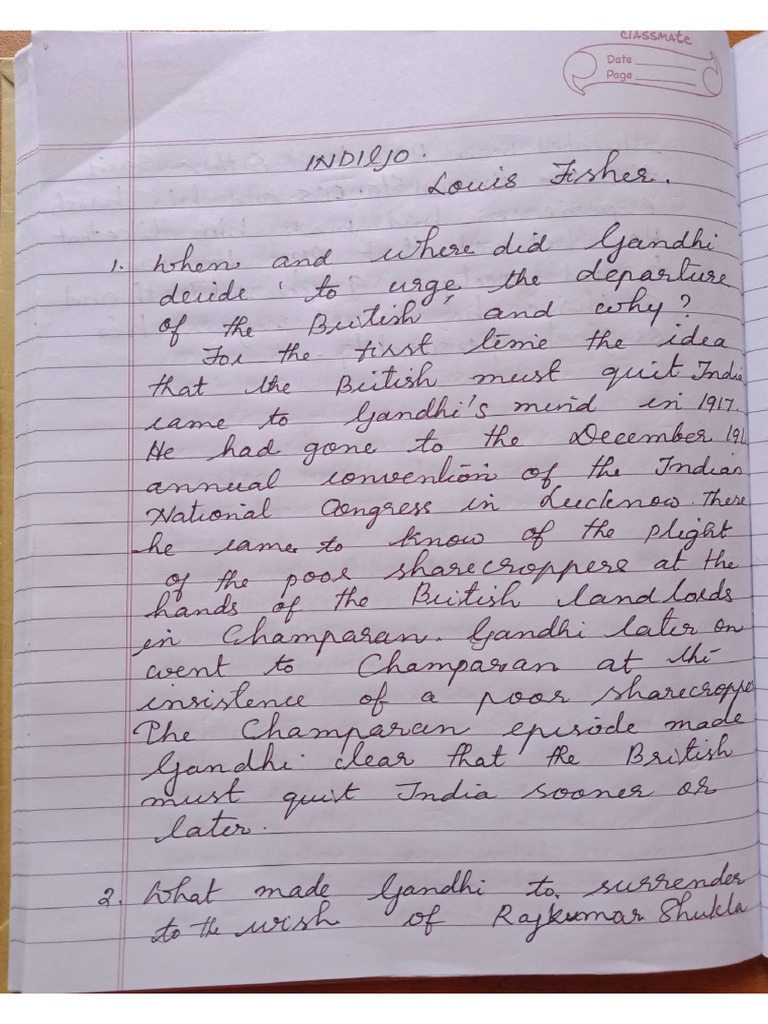 classmate
Date
Page
INDIGO.
Louis Fisher.
1. When and where did Gandhi
decide 'to urge the departure
of the British' and why?
For the first time the idea
that the British must quit India
came to Gandhi's mind in 1917.
He had gone to the December 191
annual convention of the Indian
National Congress in Lucknow. There
he came to know of the plight
of the poor sharecroppers at the
hands of the British landlords
in Champaran. Gandhi later on
went to Champaran at the
insistence of a poor sharecroppe
The Champaran episode made
Gandhi clear that the British
must quit India sooner or
later.
2. What made Gandhi to surrender
to the wish of Rajkumar Shukla